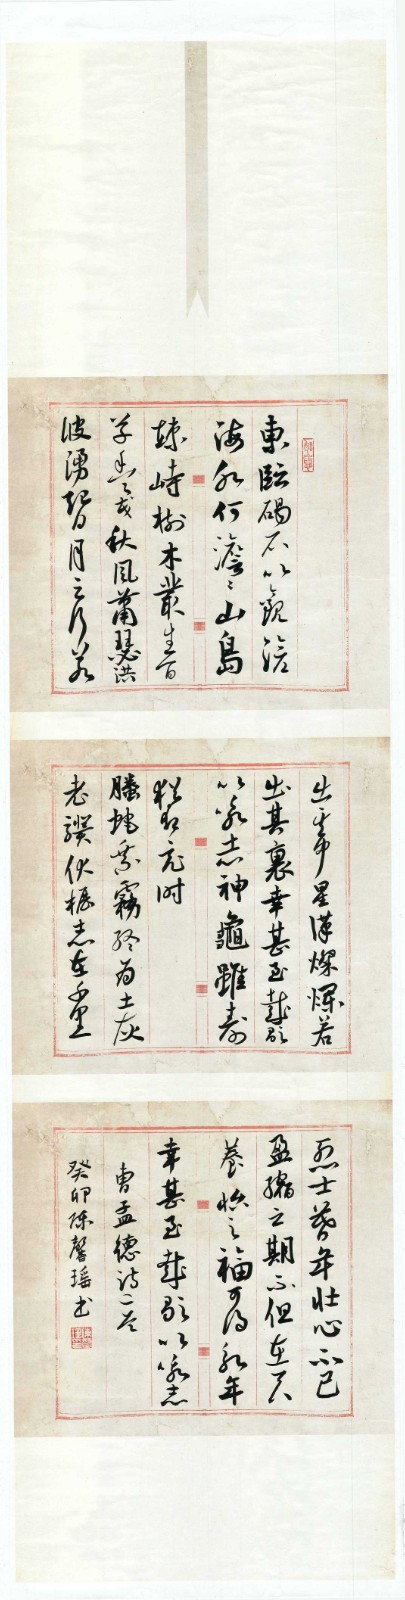 東臨碣石以觀滄
海水何澹〻山島
竦峙樹木叢生百
草豐茂秋風蕭瑟洪
波湧起日月之行若
出其中星漢燦爛若
出其裏幸甚至哉歌
以詠志神龜雖壽
猶有竟时
騰蛇乘霧終为土灰
老驥伏櫪志在千里
烈士暮年壯心不已
盈縮之期不但在天
養怡之福可得永年
幸甚至哉歌以詠志
曹孟德詩二首
癸卯陈馨瑶书